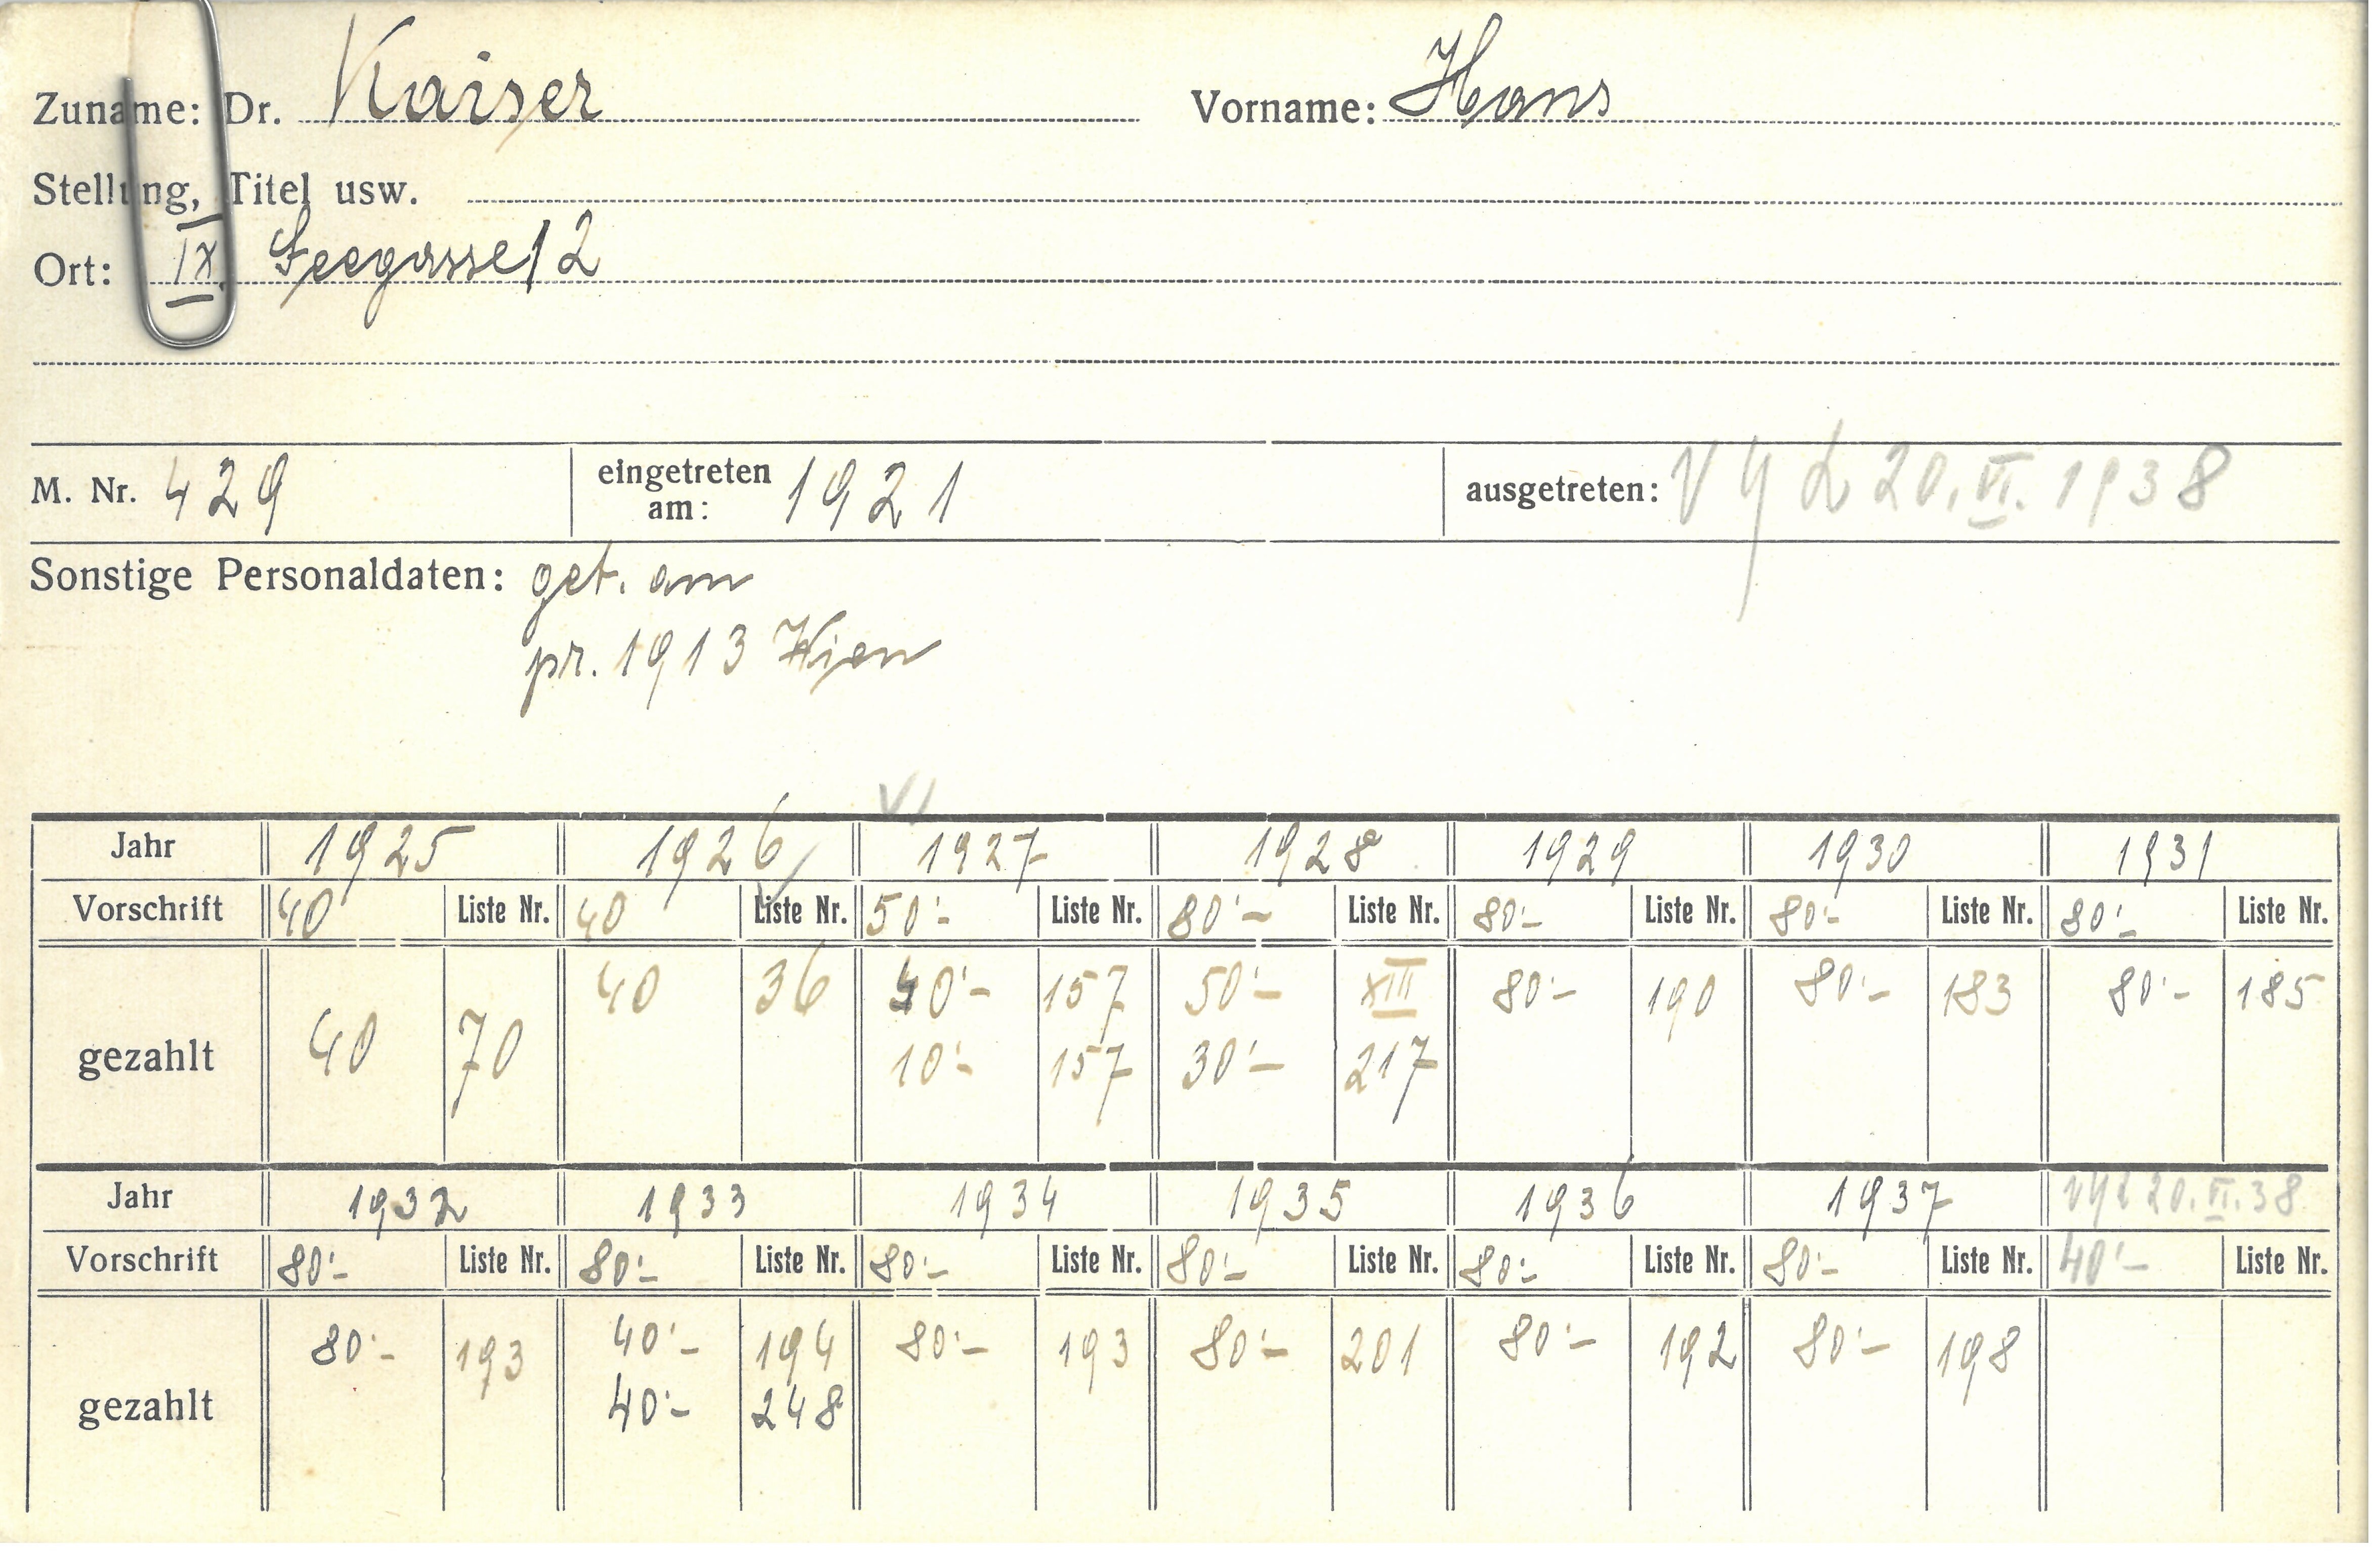 Zuname: Dr. Kaiser Vorname: Hans
Stellung, Titel usw.
Ort: IX. Seegasse 12
M. Nr. 429 eingetreten am: 1921 ausgetreten: 20. VI. 1938
Sonstige Personaldaten: geb. am
pr. 1913 Wien
VI
Jahr 1925 1926 1927 1928 1929 1930 1931
Vorschrift 40 Liste Nr. 40 Liste Nr. 50'- Liste Nr. 80'- Liste Nr. 80'- Liste Nr. 80'- Liste Nr. 80'- Liste Nr.
40 36 40'- 157 50'- XIII 80'- 190 80'- 183 80'- 185
gezahlt 40 70 10'- 157 30'- 217
Jahr 1932 1933 1934 1935 1936 1937 20. VI. 38
Vorschrift 80'- Liste Nr. 80'- Liste Nr. 80'- Liste Nr. 80'- Liste Nr. 80'- Liste Nr. 80'- Liste Nr. 40'- Liste Nr.
80'- 193 40'- 194 80'- 193 80'- 201 80'- 192 80'- 198
gezahlt 40'- 248